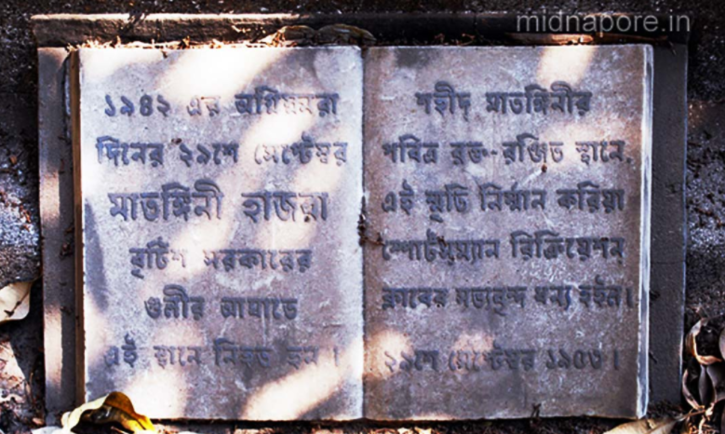 midnapore.in
১৯৪২ এর অগ্নিঝরা
দিনের ২৯শে সেপ্টেম্বর
মাতঙ্গিনী হাজরা
বৃটিশ সরকারের
গুলীর আঘাতে
এই স্থানে নিহত হন ।
শহীদ মাতঙ্গিনীর
পবিত্র রক্ত-রঞ্জিত স্থানে,
এই স্মৃতি নির্ম্মান করিয়া
স্পোর্টসম্যান রিক্রিয়েশন
ক্লাবের সভ্যবৃন্দ ধন্য হইল।
২৯শে সেপ্টেম্বর ।